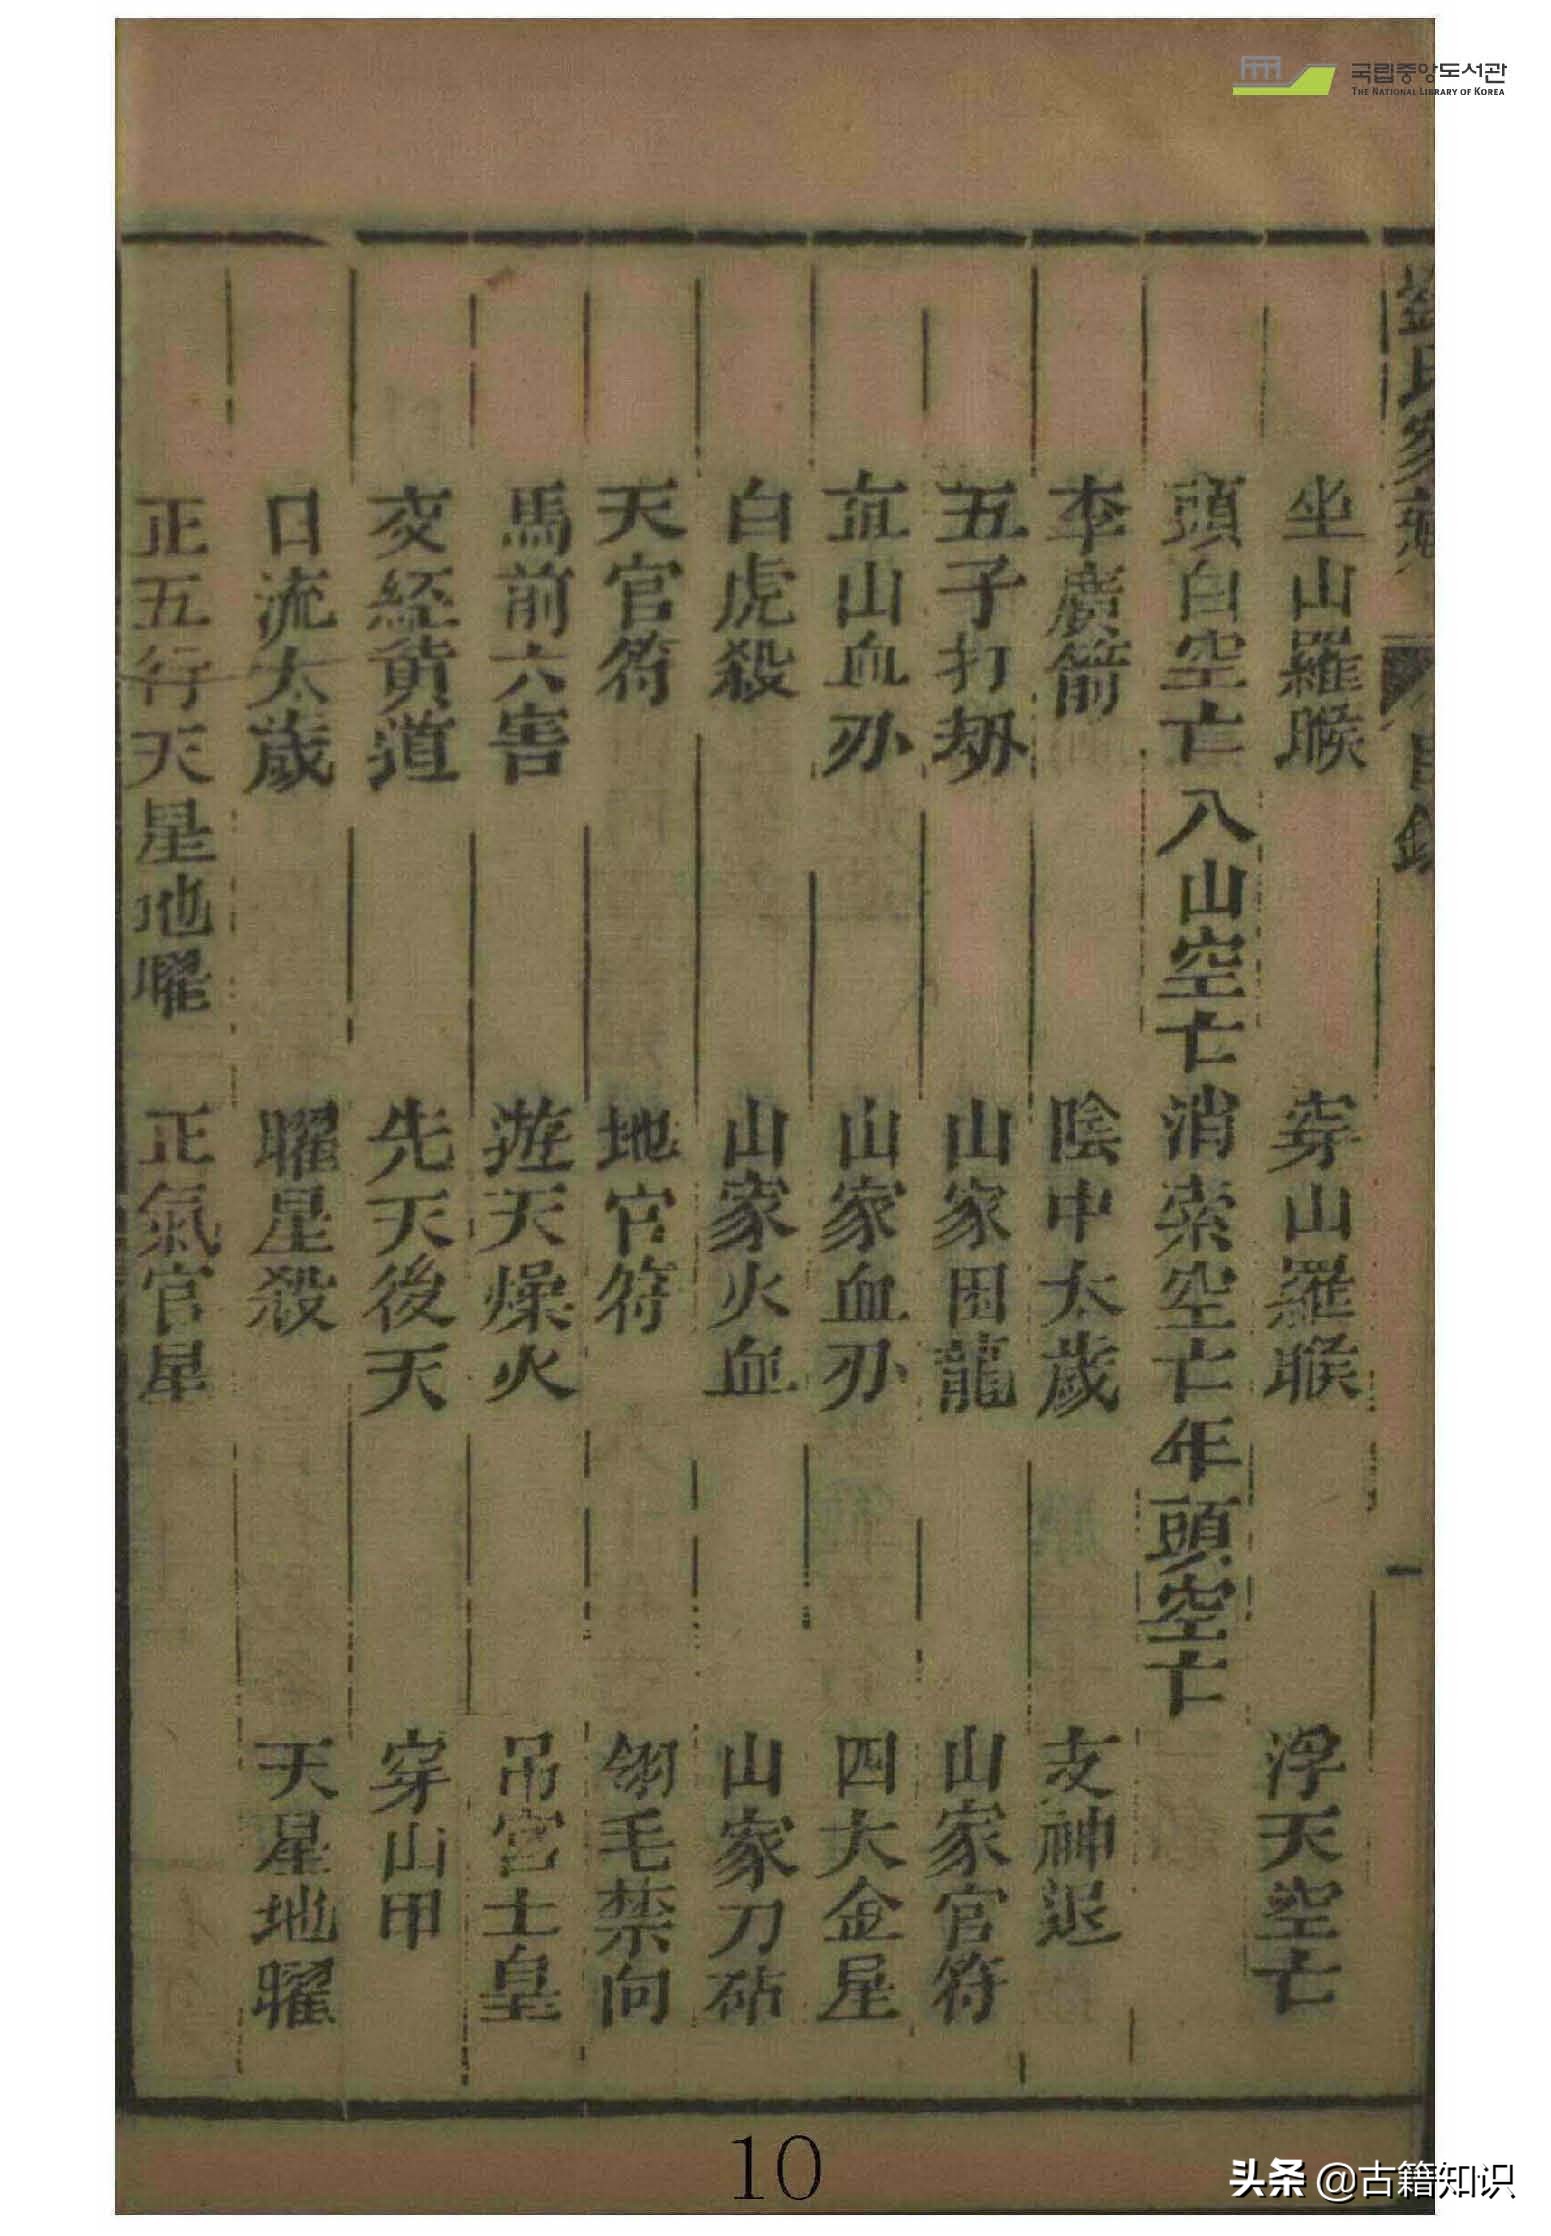 국립중앙도서관
THE NATIONAL LIBRARY OF KOREA
劉氏家藏 目錄 一
坐山羅睺 穿山羅睺 浮天空亡
頭白空亡 八山空亡 消索空亡 年頭空亡
李廣箭 陰中太歲 支神退
五子打刼 山家困龍 山家官符
直山血刃 山家血刃 四大金星
白虎殺 山家火血 山家刀砧
天官符 地官符 翎毛禁向
馬前六害 遊天燥火 吊宮土皇
交經黃道 先天後天 穿山甲
日流太歲 曜星殺 天星地曜
正五行天星地曜 正氣官星
10
头条 @古籍知识